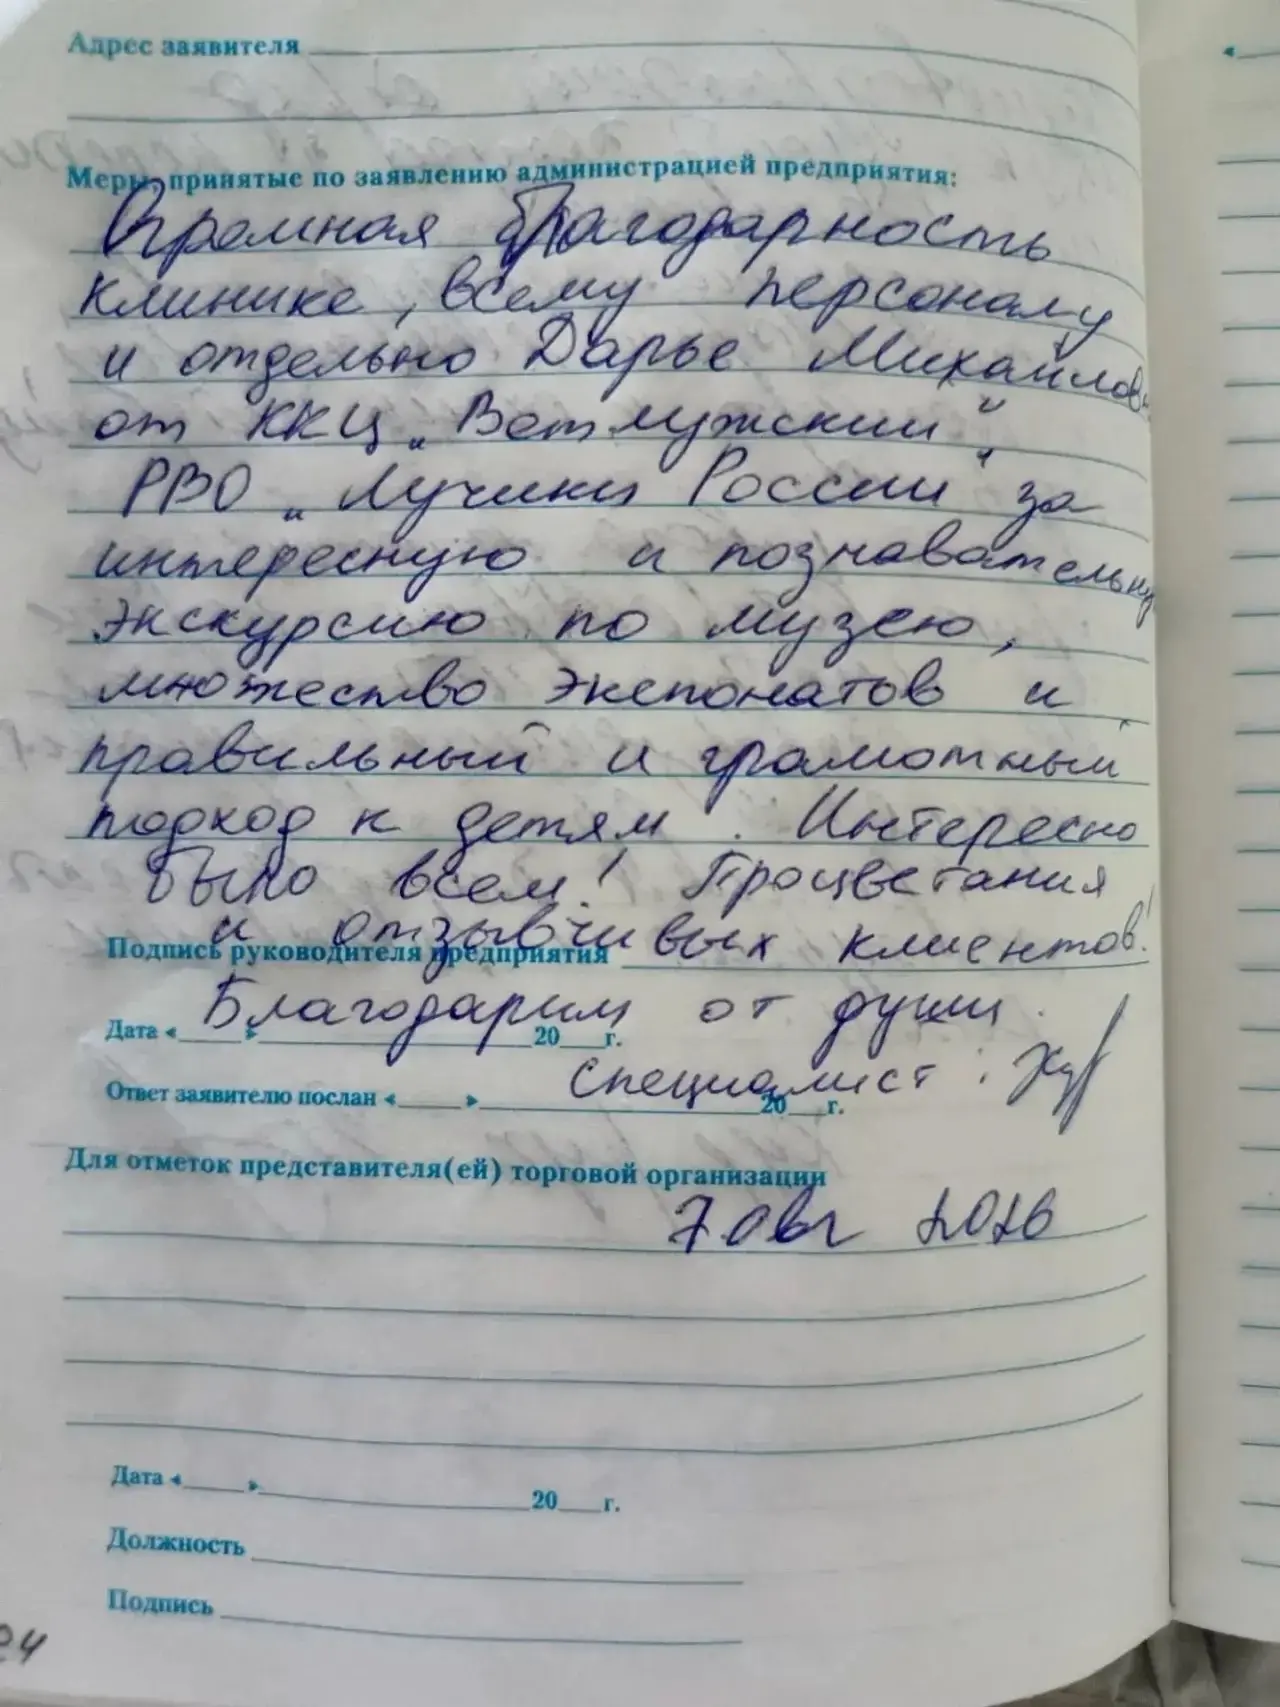 Адрес заявителя
Меры, принятые по заявлению администрацией предприятия:
Огромная благодарность
клинике, всему персоналу
и отдельно Дарье Михайловн
от ККЦ „Ветлужский"
РВО „Лучики России" за
интересную и познавательну
экскурсию по музею,
множество экспонатов и
правильный и грамотный
подход к детям. Интересно
было всем! Процветания
и отзывчивых клиентов!
Подпись руководителя предприятия
Благодарим от души.
Дата « » 20 г.
Специалист:
Ответ заявителю послан « » 20 г.
Для отметок представителя(ей) торговой организации
7 авг 2026
Дата « » 20 г.
Должность
Подпись
24